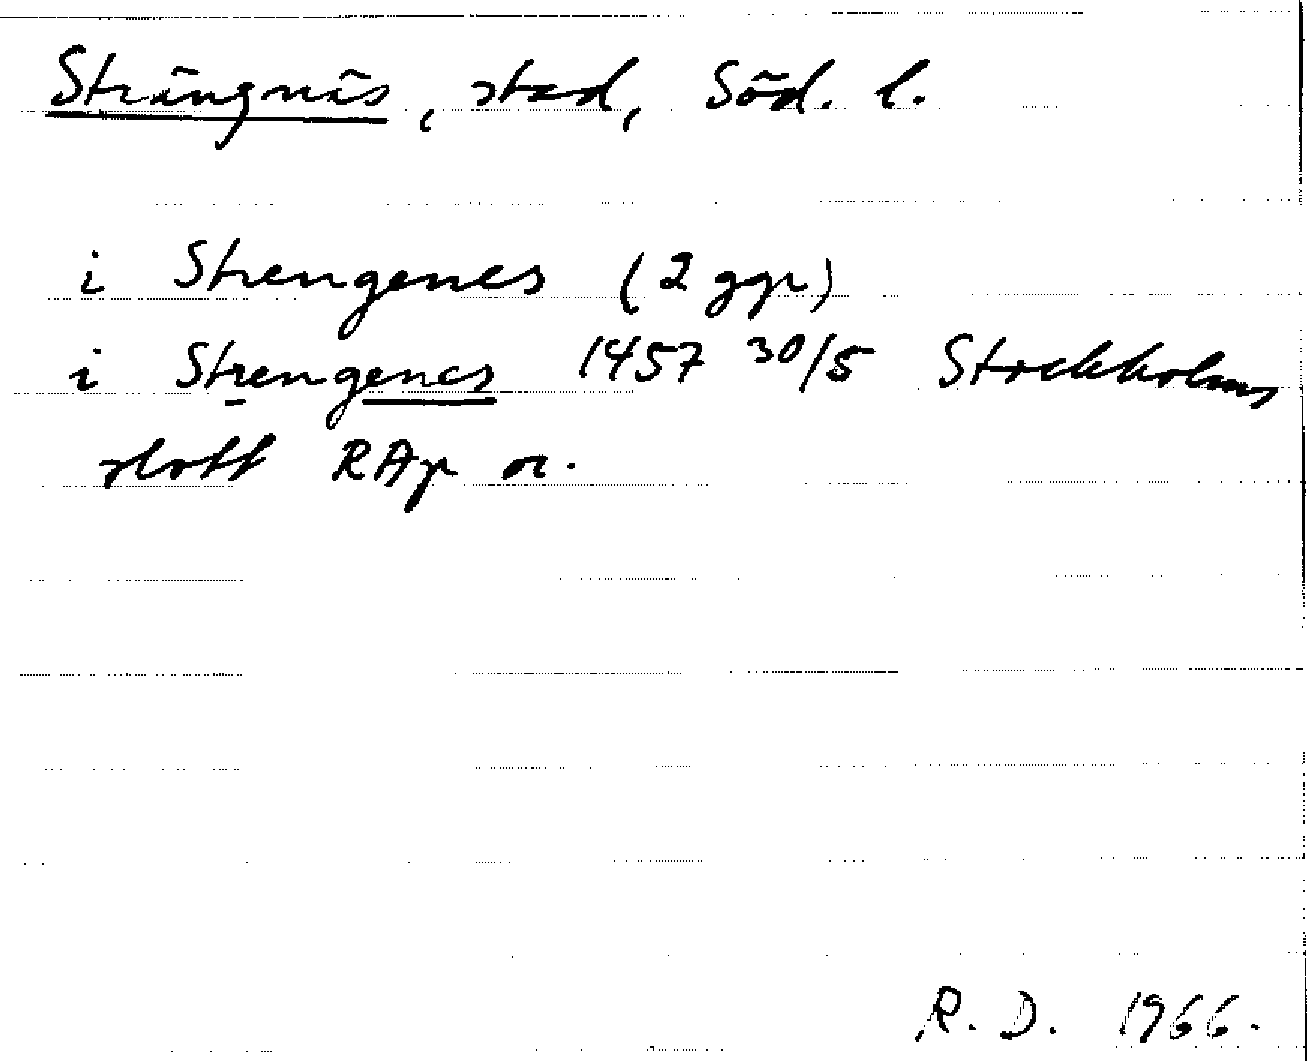 Strängnäs, stad, Söd. l.
i Strengenes (2 ggr)
i Strengenes 1457 30/5 Stockholms
slott RAp or.
R. D. 1966.